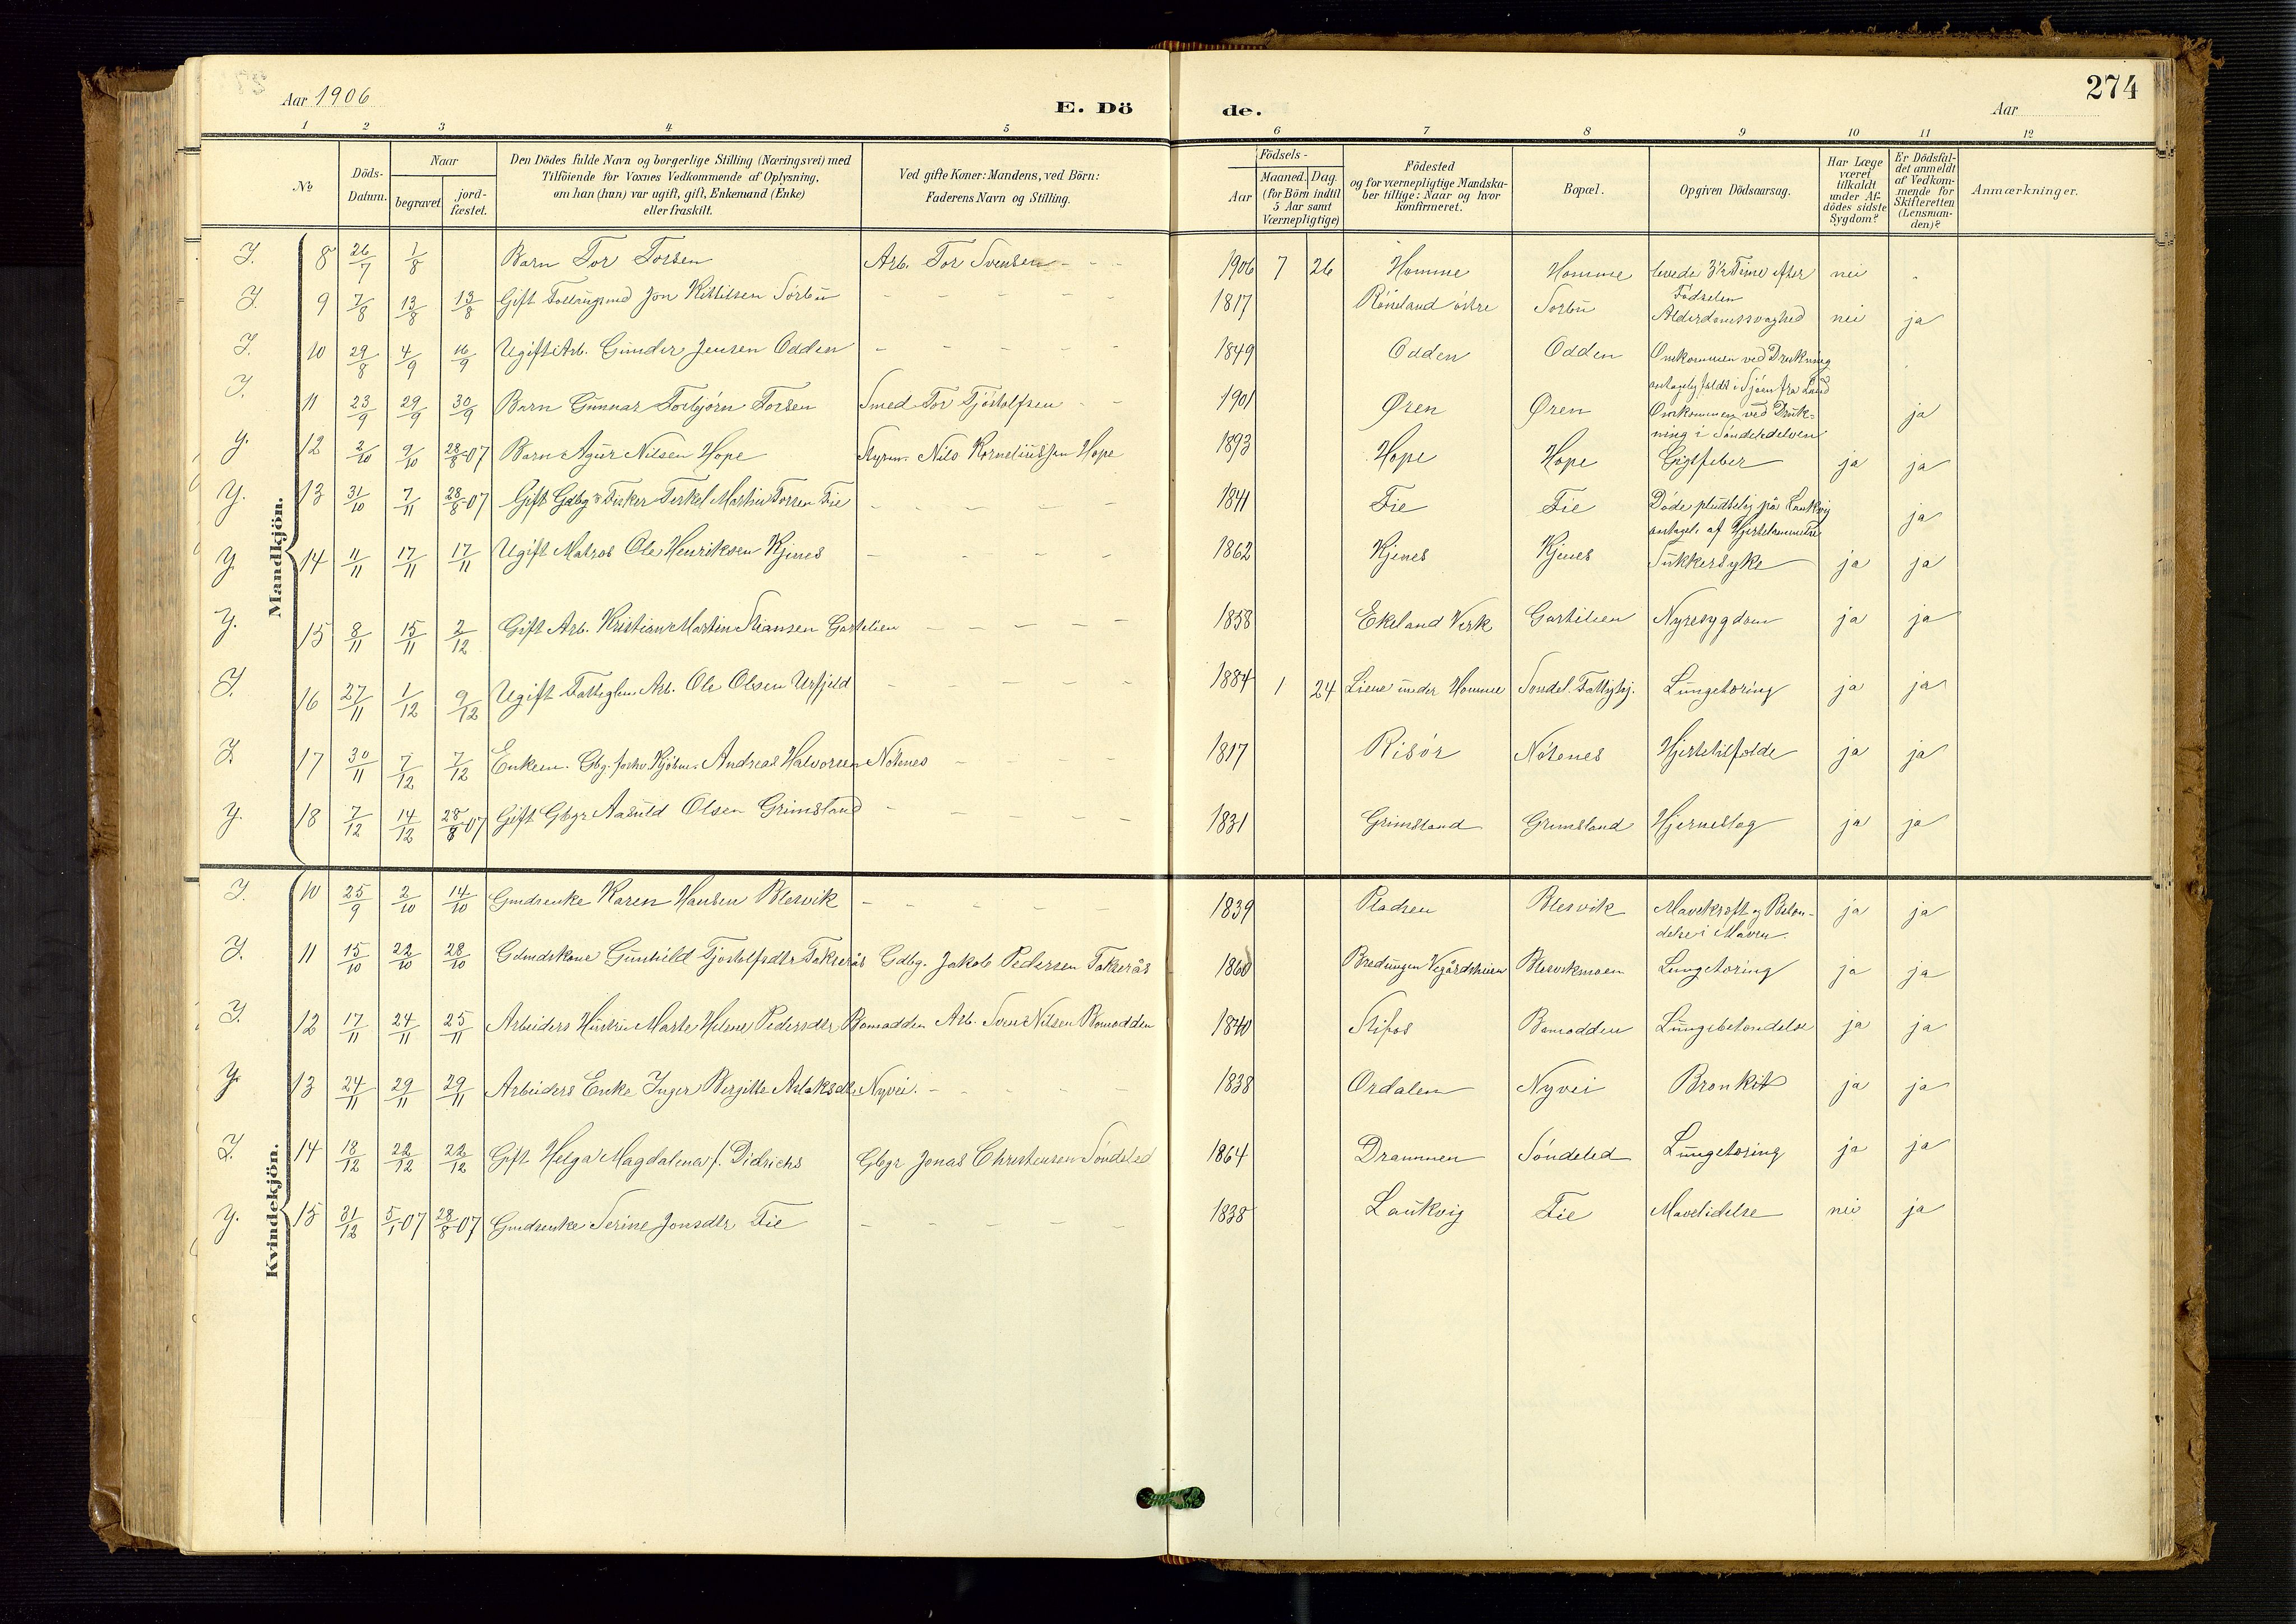 Aar 1906
E. Dö
de.
Aar
274
1 2 3 4 5 6 7 8 9 10 11 12
No
Döds-Datum.
Naar
begravet
jord-fæstet.
Den Dödes fulde Navn og borgerlige Stilling (Næringsvei) med
Tilföiende for Voxnes Vedkommende af Oplysning,
om han (hun) var ugift, gift, Enkemand (Enke)
eller fraskilt.
Ved gifte Koner: Mandens, ved Börn:
Faderens Navn og Stilling.
Födsels-
Aar
Maaned. Dag.
(for Börn indtil
5 Aar samt
Værnepligtige)
Födested
og for værnepligtige Mandska-
ber tillige: Naar og hvor
konfirmeret.
Bopæl.
Opgiven Dödsaarsag.
Har Læge
været
tilkaldt
under Af-
dödes sidste
Sygdom?
Er Dödsfal-
det anmeldt
af Vedkom-
mende for
Skifteretten
(Lensman-
den)?
Anmærkninger.
Mandkjön.
8 26/7 1/8 Barn Tor Torsen Arb. Tor Svendsen - - - 1906 7 26 Homme Homme levede 3½ Time efter Fødselen nei
9 7/8 13/8 13/8 Gift Jon Kittilsen Sörbu - - - - - 1817 Röneland östre Sorbu Alderdomssvaghed nei ja
10 29/8 4/9 16/9 Ugift Arb. Gunder Jensen Odden - - - - - 1849 Odden Odden Omkommen ved Drukning antagelig faldt i Sjöen fra Land
11 23/9 29/9 30/9 Barn Gunnar Torbjörn Torsen Smed Tor Tjöstolfsen - - 1901 Øren Øren Omkommen ved Druk-
ning i Söndeledelven ja
12 2/10 9/10 28/8-07 Barn Agur Nilsen Hope Styrm. Nils Korneliussen Hope 1893 Hope Hope Gigtfeber ja ja
13 31/10 7/11 28/8 07 Gift Gdbg & Fisker Terkel Martin Torsen Fie - - - - - 1841 Fie Fie Döde pludselig på Laukvig
antagel. af Hjertelammelse ja
14 11/11 17/11 17/11 Ugift Matros Ole Henriksen Kjenes - - - - 1862 Kjenes Kjenes Sukkersyke ja ja
15 8/11 15/11 2/12 Gift Arb. Kristian Martin Stiansen Gartelien - - - - - 1858 Ekeland Verk Gartelien Nyresygdom ja ja
16 27/11 1/12 9/12 Ugift Arb. Ole Olsen Urfjeld - - - - - 1884 1 24 Liene under Homme Söndel. Fattighj. Lungetæring ja ja
17 30/11 7/12 7/12 Enkem. Gbg. Andreas Halvorsen Nötenes - - - - 1817 Risör Nötenes Hjertetilfælde ja ja
18 7/12 14/12 28/8-07 Gift Gbgr Aasuld Olsen Grimsland - - - - - 1831 Grimsland Grimsland Hjerneslag ja ja
Kvindekjön.
10 25/9 2/10 14/10 Gmdsenke Karen Hansen Blesvik - - - - - 1839 Pladsen Blesvik Mavekræft og Beten-
delse i Maven. ja ja
11 15/10 22/10 28/10 Gdmdskone Gunhild Tjostolfsdtr Takserås Gdbg. Jakob Pedersen Takserås 1860 Vegårdsheien Blesvikmoen Lungetæring ja ja
12 17/11 24/11 25/11 Arbeiders Hustru Marte Helene Pedersdtr Bomodden Arb. Sven Nilsen Bomodden 1840 Stifos Bomodden Lungebetændelse ja ja
13 24/11 29/11 29/11 Arbeiders Enke Inger Bergitte Aslaksdtr Nyvei. - - - 1838 Ordalen Nyvei Bronkit ja ja
14 18/12 22/12 22/12 Gift Helga Magdalena f. Didrichs Gbgr Jonas Christensen Söndeled 1864 Drammen Söndeled Lungetæring ja ja
15 31/12 5/1-07 28/8-07 Gmdsenke Serine Jonsdtr Fie - - - - - 1838 Laukvig Fie Mavelidelse nei ja